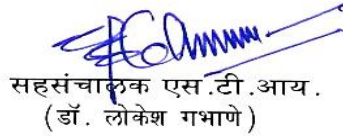 सहसंचालक एस.टी.आय.
(डॉ. लोकेश गभाणे)